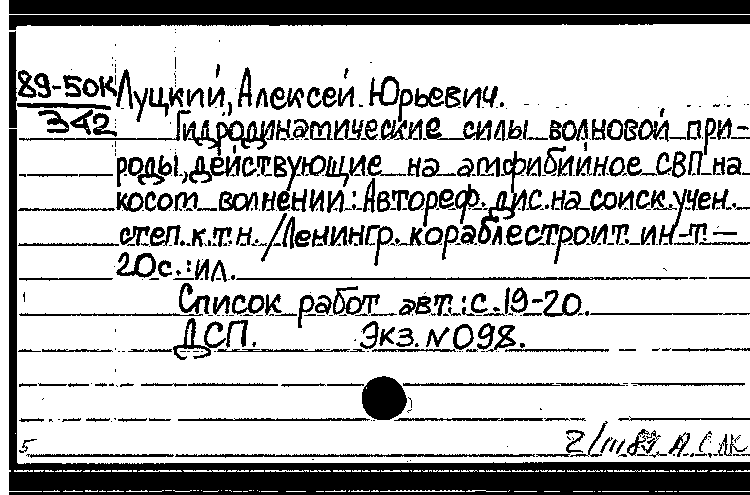 89-50к Луцкий, Алексей Юрьевич.
342 Гидродинамические силы волновой при-
роды, действующие на амфибийное СВП на
косом волнении: Автореф. дис. на соиск. учен.
степ. к.т.н. / Ленингр. кораблестроит. ин-т. –
20с.: ил.
Список работ авт.: с. 19-20.
ДСП. Экз. N 098.
5